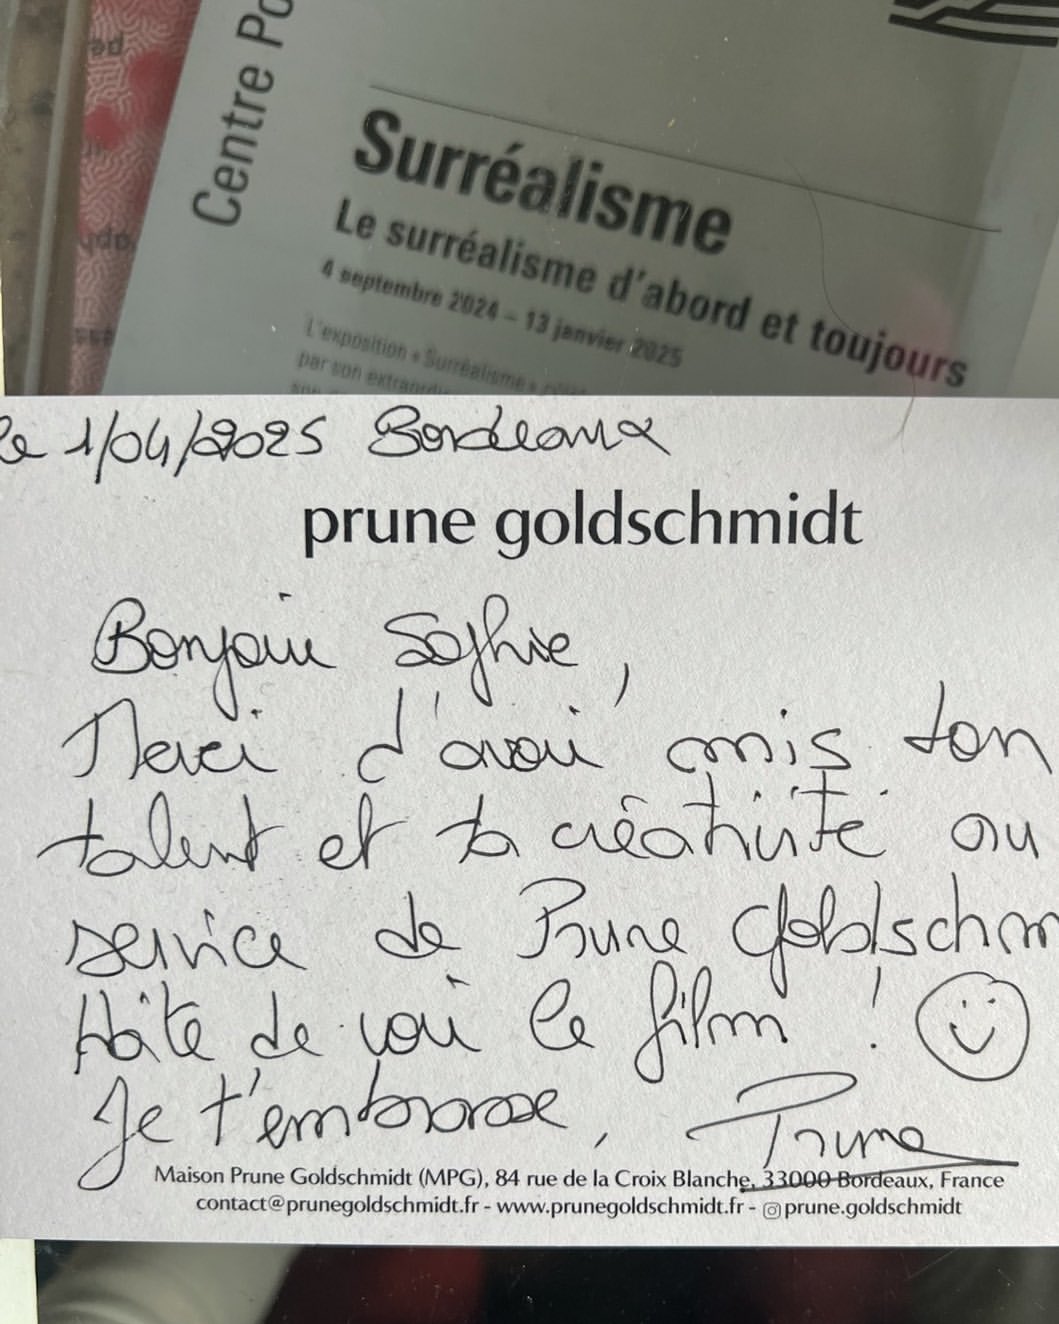 Centre Po
Surréalisme
Le surréalisme d'abord et toujours
4 septembre 2024 – 13 janvier 2025
L'exposition « Surréalisme »
par son extraordi
le 1/04/2025 Bordeaux
prune goldschmidt
Bonjour Sophie,
Merci d'avoir mis ton
talent et ta créativité au
service de Prune Goldschm
Hâte de voir le film ! 
Je t'embrasse, Prune
Maison Prune Goldschmidt (MPG), 84 rue de la Croix Blanche, 33000 Bordeaux, France
contact@prunegoldschmidt.fr - www.prunegoldschmidt.fr - prune.goldschmidt